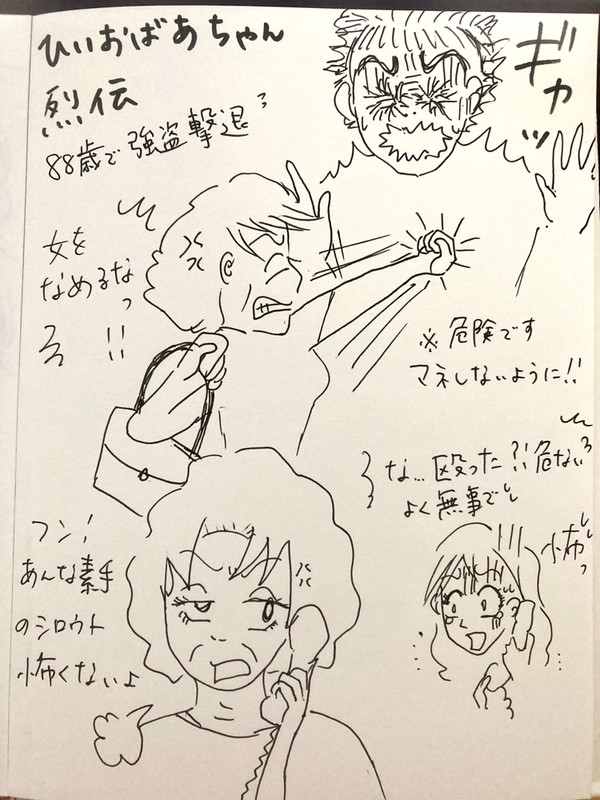 ひいおばあちゃん
烈伝
88歳で強盗撃退
ギャッ
女を
なめるなっ
!!
※危険です
マネしないように!!
な…殴った?!危ない
よく無事で
怖っ
フン!
あんな素手
のシロウト
怖くないよ